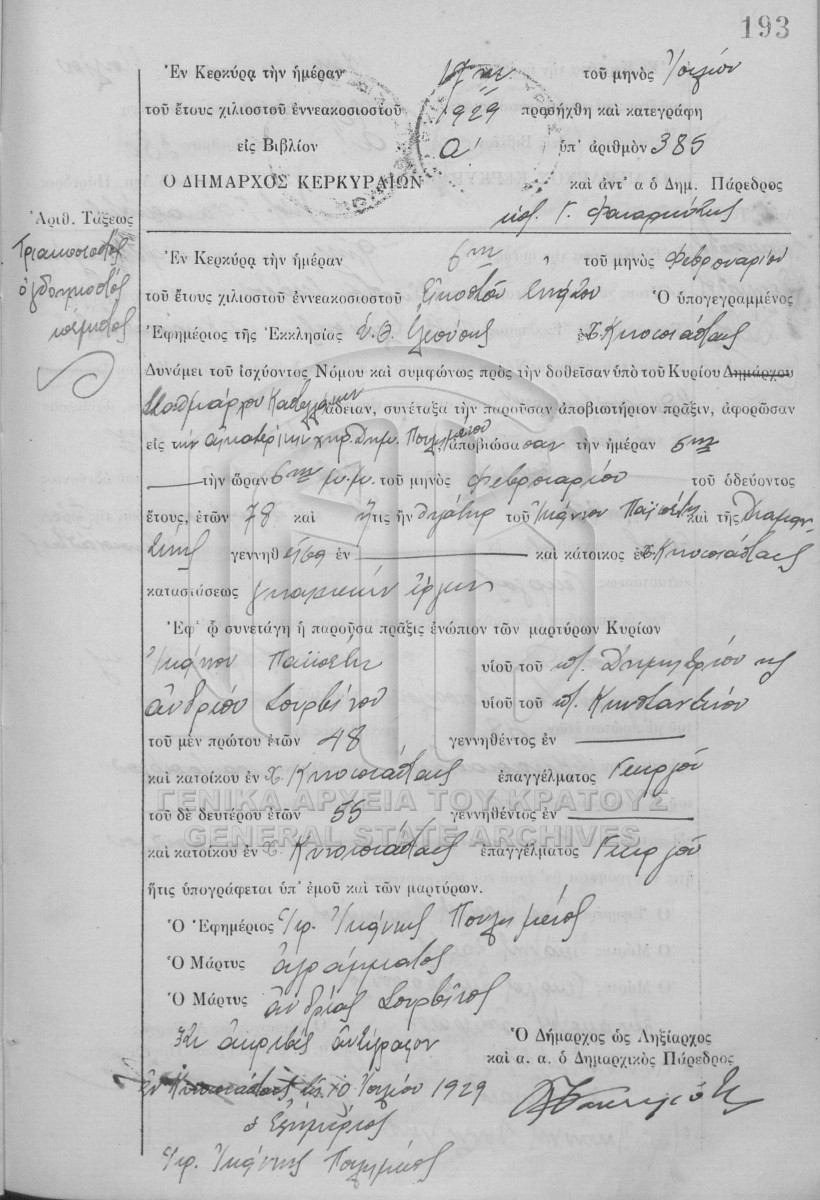 193
Ἐν Κερκύρᾳ τὴν ἡμέραν 17ην τοῦ μηνὸς Ἰουλίου
τοῦ ἔτους χιλιοστοῦ ἐννεακοσιοστοῦ 1929 προσήχθη καὶ κατεγράφη
εἰς Βιβλίον α' ὑπ' ἀριθμὸν 385
Ο ΔΗΜΑΡΧΟΣ ΚΕΡΚΥΡΑΙΩΝ καὶ ἀντ' α ὁ Δημ. Πάρεδρος
Ἀριθ. Τάξεως
Τριακοσιοστὸς
ὀγδοηκοστὸς
πέμπτος
Ἐν Κερκύρᾳ τὴν ἡμέραν 5ην τοῦ μηνὸς Φεβρουαρίου
τοῦ ἔτους χιλιοστοῦ ἐννεακοσιοστοῦ Εἰκοστοῦ ἐνάτου Ὁ ὑπογεγραμμένος
Ἐφημέριος τῆς Ἐκκλησίας Ὑ. Θ. Ἐλεούσης
Δυνάμει τοῦ ἰσχύοντος Νόμου καὶ συμφώνως πρὸς τὴν δοθεῖσαν ὑπὸ τοῦ Κυρίου Δημάρχου
Σταθμάρχου ἄδειαν, συνέταξα τὴν παροῦσαν ἀποβιωτήριον πρᾶξιν, ἀφορῶσαν
εἰς τὴν Αἰκατερίνην χηρ. Δημ. ἀποβιώσασαν τὴν ἡμέραν 5ην
τὴν ὥραν 5ην μ.μ. τοῦ μηνὸς Φεβρουαρίου τοῦ ὁδεύοντος
ἔτους, ἐτῶν 78 καὶ ἥτις ἦν θυγάτηρ τοῦ Ἰωάννου καὶ τῆς Διαμαν-
τίνης γεννηθεῖσα ἐν καὶ κάτοικος ἐν
καταστάσεως γυναικείων ἔργων
Ἐφ' ᾧ συνετάγη ἡ παροῦσα πρᾶξις ἐνώπιον τῶν μαρτύρων Κυρίων
Ἰωάννου υἱοῦ τοῦ ποτ. Δημητρίου
Ἀνδρέου Σουρβίνου υἱοῦ τοῦ ποτ. Κωνσταντίνου
τοῦ μὲν πρώτου ἐτῶν 48 γεννηθέντος ἐν
καὶ κατοίκου ἐν ἐπαγγέλματος Γεωργοῦ
ΓΕΝΙΚΑ ΑΡΧΕΙΑ ΤΟΥ ΚΡΑΤΟΥΣ
τοῦ δὲ δευτέρου ἐτῶν 55 γεννηθέντος ἐν
GENERAL STATE ARCHIVES
καὶ κατοίκου ἐν ἐπαγγέλματος Γεωργοῦ
ἥτις ὑπογράφεται ὑπ' ἐμοῦ καὶ τῶν μαρτύρων.
Ὁ Ἐφημέριος Ἱερ. Ἰωάννης
Ὁ Μάρτυς ἀγράμματος
Ὁ Μάρτυς Ἀνδρέας Σουρβίνος
Ὅτι ἀκριβὲς ἀντίγραφον
Ὁ Δήμαρχος ὡς Ληξίαρχος
καὶ α. α. ὁ Δημαρχικὸς Πάρεδρος
10 Ἰουλίου 1929
ὁ Ἐφημέριος
Ἱερ. Ἰωάννης